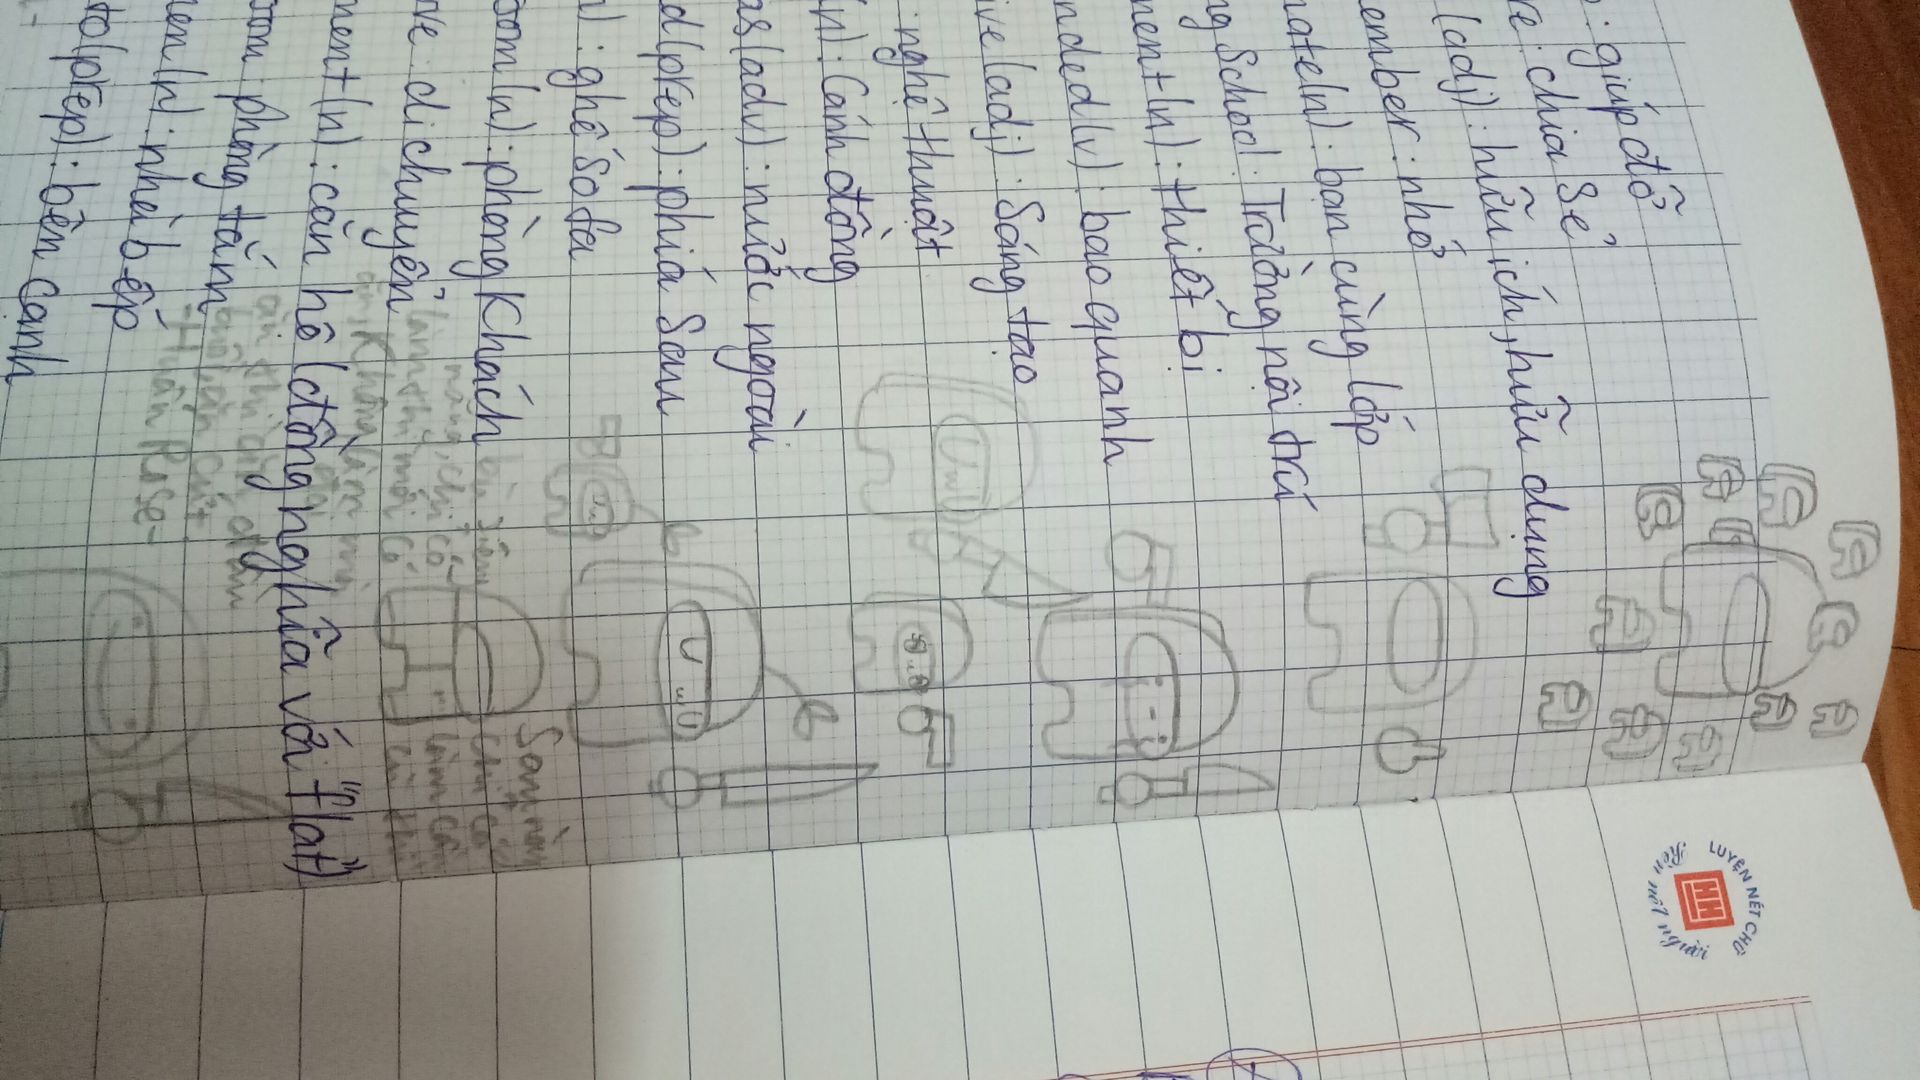 : giúp đỡ
re : chia sẻ
(adj) : hữu ích, hữu dụng
ember : nhớ
mate(n) : bạn cùng lớp
ng School : Trường nội trú
ment(n) : thiết bị
nded(v) : bao quanh
ive(adj) : Sáng tạo
: nghệ thuật
(n) : Cánh đồng
as(adv) : nước ngoài
d(prep) : phía Sau
) : ghế Sofa
oom (n) : phòng Khách
ve : di chuyển
ment(n) : căn hộ (đồng nghĩa với "flat")
oom : phòng tắm
hen(n) : nhà bếp
to(prep) : bên cạnh
LUYỆN NÉT CHỮ
Rèn nết người
HH